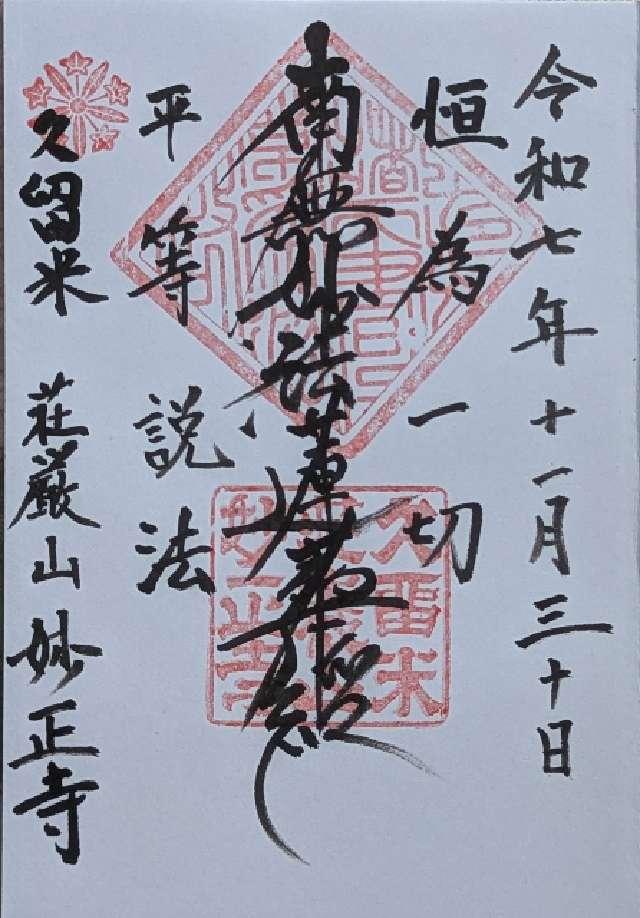 令和七年十一月三十日
恒為一切
南無妙法蓮華経
平等説法
久留米 荘厳山妙正寺
久留米
妙正寺